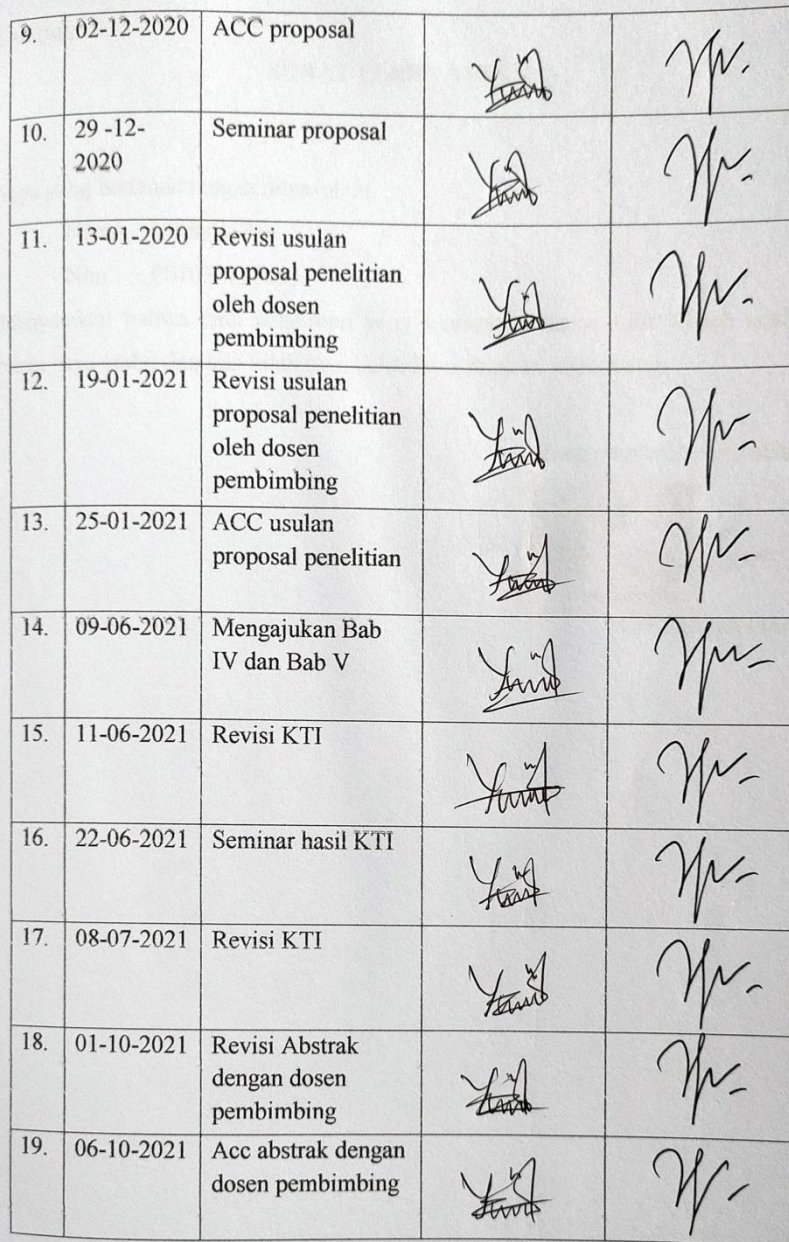 9. 02-12-2020 ACC proposal
10. 29 -12- Seminar proposal
2020
11. 13-01-2020 Revisi usulan
proposal penelitian
oleh dosen
pembimbing
12. 19-01-2021 Revisi usulan
proposal penelitian
oleh dosen
pembimbing
13. 25-01-2021 ACC usulan
proposal penelitian
14. 09-06-2021 Mengajukan Bab
IV dan Bab V
15. 11-06-2021 Revisi KTI
16. 22-06-2021 Seminar hasil KTI
17. 08-07-2021 Revisi KTI
18. 01-10-2021 Revisi Abstrak
dengan dosen
pembimbing
19. 06-10-2021 Acc abstrak dengan
dosen pembimbing